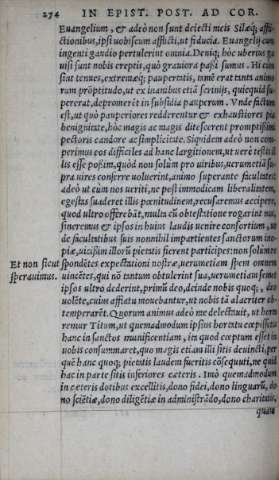 254 IN EPIST. POST. AD COR.
Euangelium, & adeò non sunt deiecti meis Silæq́; affli-
ctionibus, ipsi uobiscum afflicti, ut fiducia Euangelij cum
ingenti gaudio pertulerint omnia. Deniq; hoc uberius ga
uisi sunt nobis ereptis, quò grauiora passi sumus. Hi cum
sint tenues, extremæq́; paupertatis, immò erat tanta animo
rum promptitudo, ut ex inanibus etiã scrinijs, quicquid su-
pererat, depromerēt in subsidia pauperum. Vnde factum
est, ut quò pauperiores redderentur & exhaustiores pia
benignitate, hoc magis ac magis ditescerent promptissimi
pectoris candore ac simplicitate. Siquidem adeò non com-
perimus eos difficiles ad hanc largitionem, ut uerè testis il
lis esse possim, quòd non solùm pro uiribus, uerumetiã su-
pra uires conferre uoluerint, animo superante facultates
adeò ut cum nos ueriti, ne post immodicam liberalitatem,
egestas suaderet illis pœnitudinem, recusaremus accipere,
quod ultro offerebāt, multa cū obtestatione rogarint nos,
sineremus & ipsos in huius laudis uenire consortium, ut
de facultatibus suis nonnihil impartientes sanctorum ino-
piæ, uicissim illorū pietatis fierent participes: non solum re
Et non sicut spondētes expectationi nostræ, uerumetiam spem omnem
sperauimus. uincētes, qui nō tantum obtulerint sua, uerumetiam semet
ipsos ultro dederint, primū deo, deinde nobis quoq;, deo
uolēte, cuius afflatu mouebantur, ut nobis tā alacriter ob-
temperarēt. Quorum animus adeò me delectauit, ut horta
remur Titum, ut quemadmodum ipsius hortatu cœpissetis
hanc in sanctos munificentiam, ita quod cœptum esset in
uobis consummaret, quo magis etiam illi sitis deuincti, per
quē hanc quoq; pietatis laudem fueritis cōsequuti, ne quid
hac in parte sitis inferiores cæteris. Imò quemadmodum
in cæteris dotibus excellitis, dono fidei, dono linguarū, do
no sciētiæ, dono diligētiæ in administrādo, dono charitatis,
quam